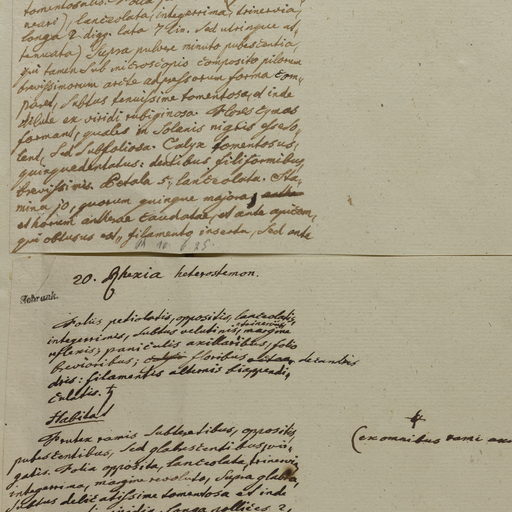 tomentosatis. Folia
neari), lanceolata, integerrima, trinervia,
longa 2 digg. lata 7 lin. Sed utrinque at,
tenuata) Supra pulvere minuto pubescentia,
qui tamen sub microscopio composito pilorum
brevissimorum arcte adpressorum forma com,
paret, Subtus tenuissime tomentosa, et inde
dilute ex viridi rubiginosa. Flores Cymas
formant, quales in Solanis nigris esse so,
lent, Sed subfoliosa. Calyx tomentosus,
quinquedentatus: dentibus filiformibus,
brevissimis. Petala 5, lanceolata. Sta,
mina 10, quorum quinque majora,
et horum antherae caudatae, et ante apicem,
qui obtusus est, filamento inserta, Sed ante
20. Rhexia heterostemon.
Foliis petiolatis, oppositis, lanceolatis,
integerrimis, subtus velutinis, trinerviis margine
reflexis, paniculis axillaribus, folio
brevioribus; floribus decandris
dris: filamentis alternis biappendi,
culatis.
Habitat
Frutex ramis subteretibus, oppositis
pubescentibus, Sed glabrescentibus, vir,
gatis. Folia opposita, lanceolata, trinervi,
integerrima, margine revoluto, supra glabra,
subtus delicatissime tomentosa et inde
longa pollices 2,
(ex omnibus rami ax